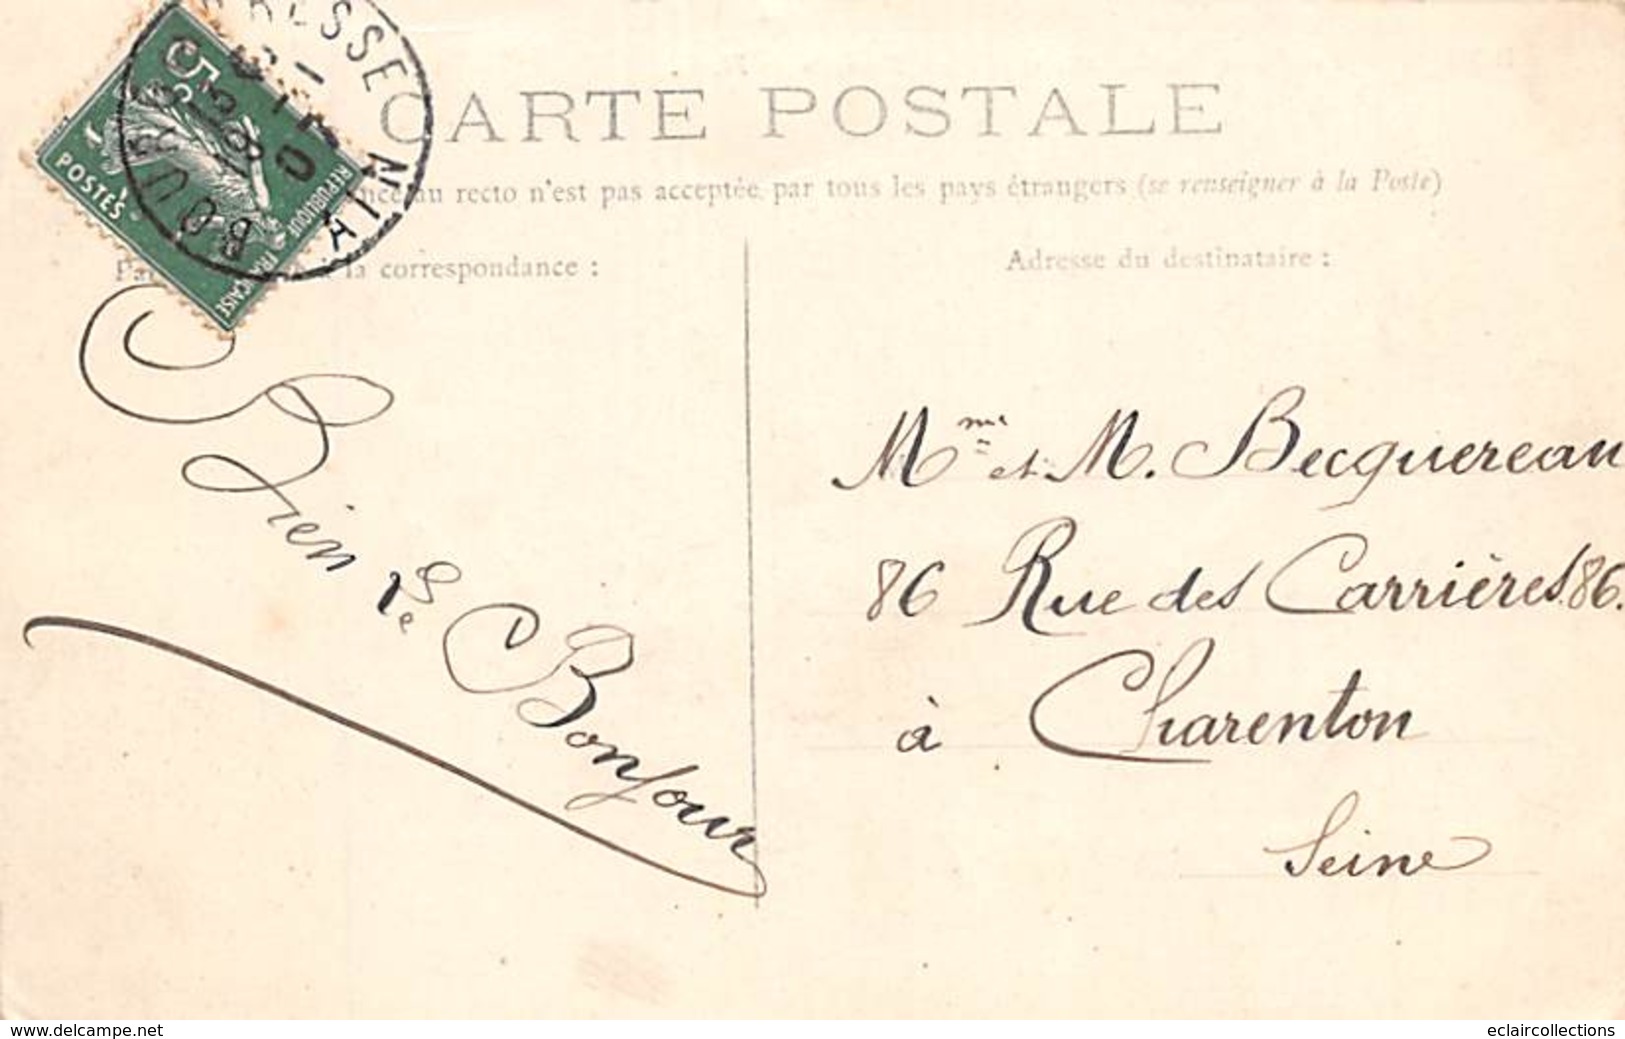 CARTE POSTALE
au recto n'est pas acceptée par tous les pays étrangers (se renseigner à la Poste)
la correspondance :
Adresse du destinataire :
5c
POSTES
REPUBLIQUE FRANÇAISE
BOURG
AIN
Bien le Bonjour
Mme et M. Becquereau
86 Rue des Carrières 86.
à Charenton
Seine
www.delcampe.net
eclaircollections